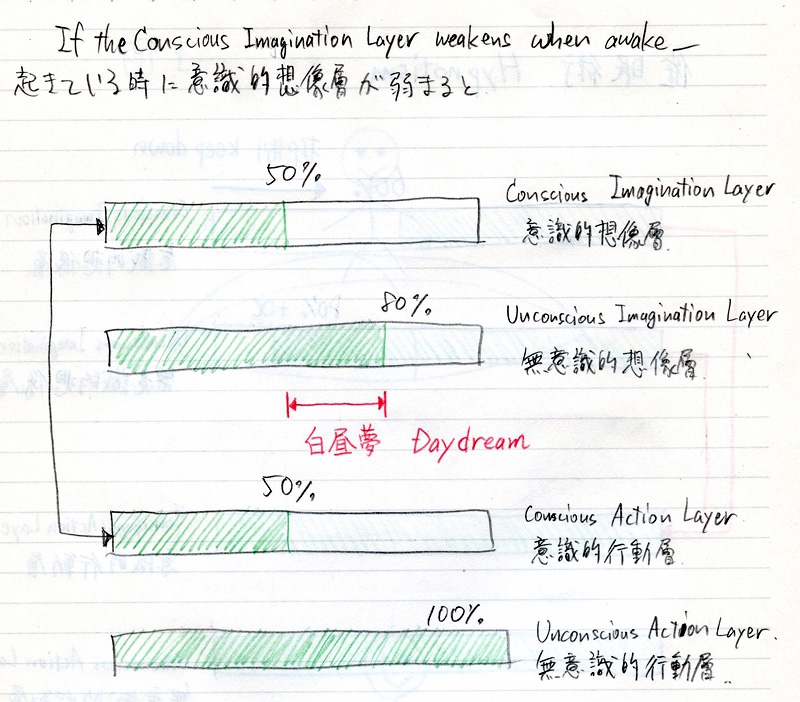 If the Conscious Imagination Layer weakens when awake—
起きている時に意識的想像層が弱まると
50%
Conscious Imagination Layer
意識的想像層
80%
Unconscious Imagination Layer
無意識的想像層
白昼夢 Daydream
50%
Conscious Action Layer
意識的行動層
100%
Unconscious Action Layer.
無意識的行動層